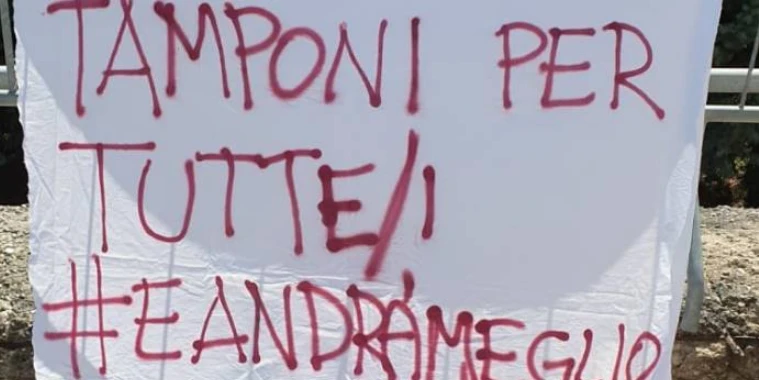 TAMPONI PER
TUTTE/I
#EANDRÁMEGLIO